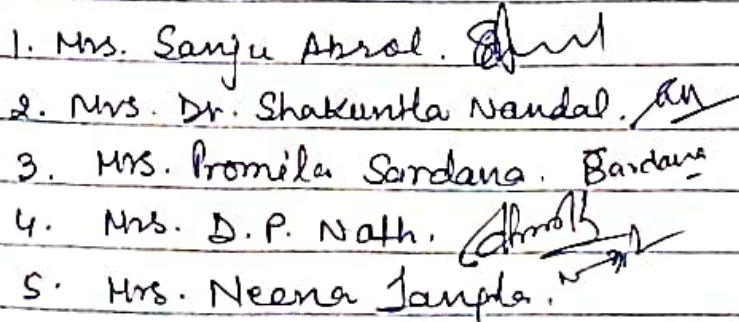 1. Mrs. Sanju Abrol.
2. Mrs. Dr. Shakuntla Nandal.
3. Mrs. Promila Sardana. Sardana
4. Mrs. D. P. Nath.
5. Mrs. Neena Jangla.